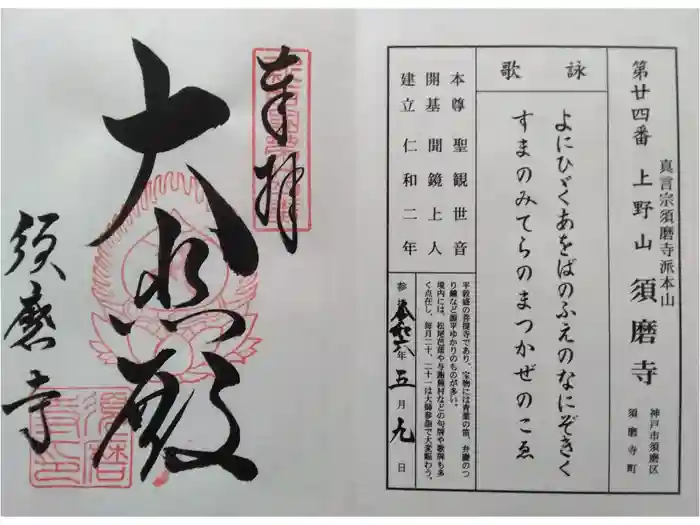 第廿四番 上野山 須磨寺
真言宗須磨寺派本山
神戸市須磨区
須磨寺町
詠歌
よにひゞくあをばのふえのなにぞきく
すまのみてらのまつかぜのこゑ
本尊 聖観世音
開基 聞鏡上人
建立 仁和二年
平敦盛の菩提寺であり、宝物には青葉の笛、弁慶のつ
り鐘など源平ゆかりのものが多い。
境内には、松尾芭蕉や与謝蕪村などの句碑や歌碑も多
く点在し、毎月二十、二十一は大師参詣で大変賑わう。
年五月九日
奉拝
須磨寺
須磨